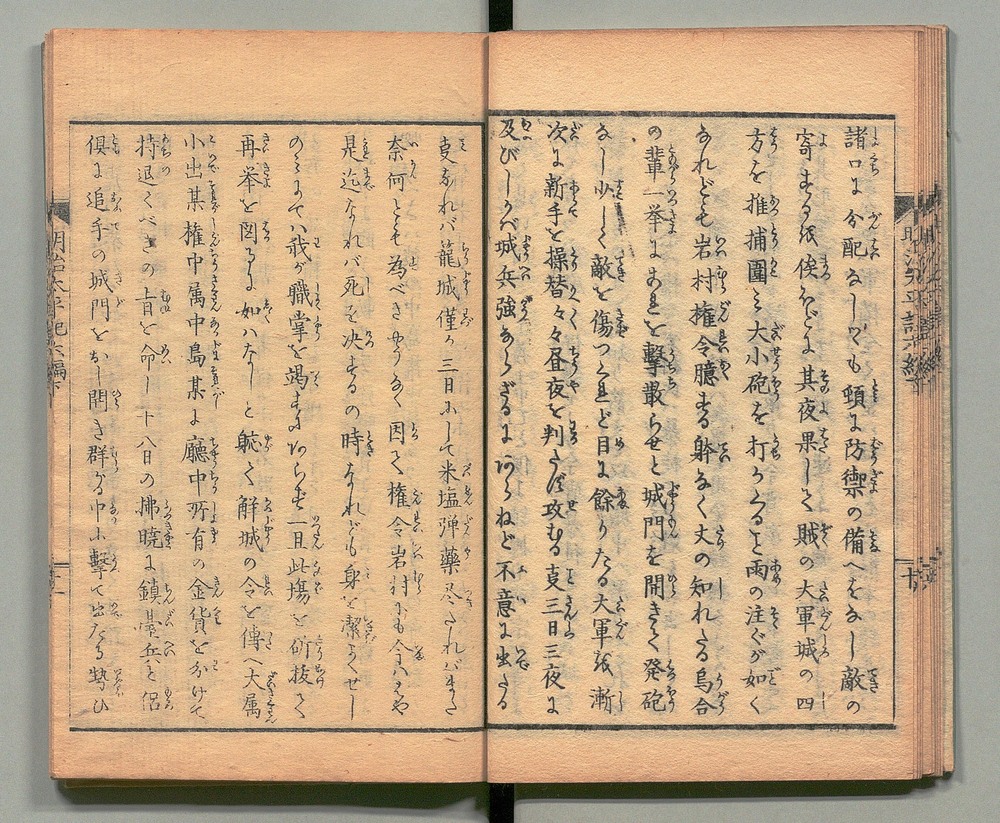 諸口に分配なし猶も頻に防禦の備へをなし敵の
寄するを俟ほどに其夜果して賊の大軍城の四
方を推捕圍み大小砲を打かくること雨の注ぐが如く
なれども岩村権令臆する躰なく丈の知れたる烏合
の輩一挙にこれを撃散らせと城門を開きて発砲
なし少しく敵を傷つくれど目に餘りたる大軍ゆゑ漸
次に新手を操替々々昼夜を判たず攻むる事三日三夜に
及びしかば城兵強きならざるにあらねど不意に出たる
事なれバ籠城僅か三日にして米塩弾薬尽たれバまた
奈何とも為べきやうなく因て権令岩村にも今ハはや
是迄なれバ死を决するの時なれども身を潔よくせし
のみにてハ我が職掌を竭すにあらず一旦此場を斫抜て
再挙を図るに如ハなしと軈て解城の令を傳へ大属
小出某権中属中島某に廳中所有の金貨を分けて
持退くべきの旨を命じ十八日の拂暁に鎮臺兵を侶
倶に追手の城門をおし開き群がる中に撃て出たる勢ひ
明治太平記六編下